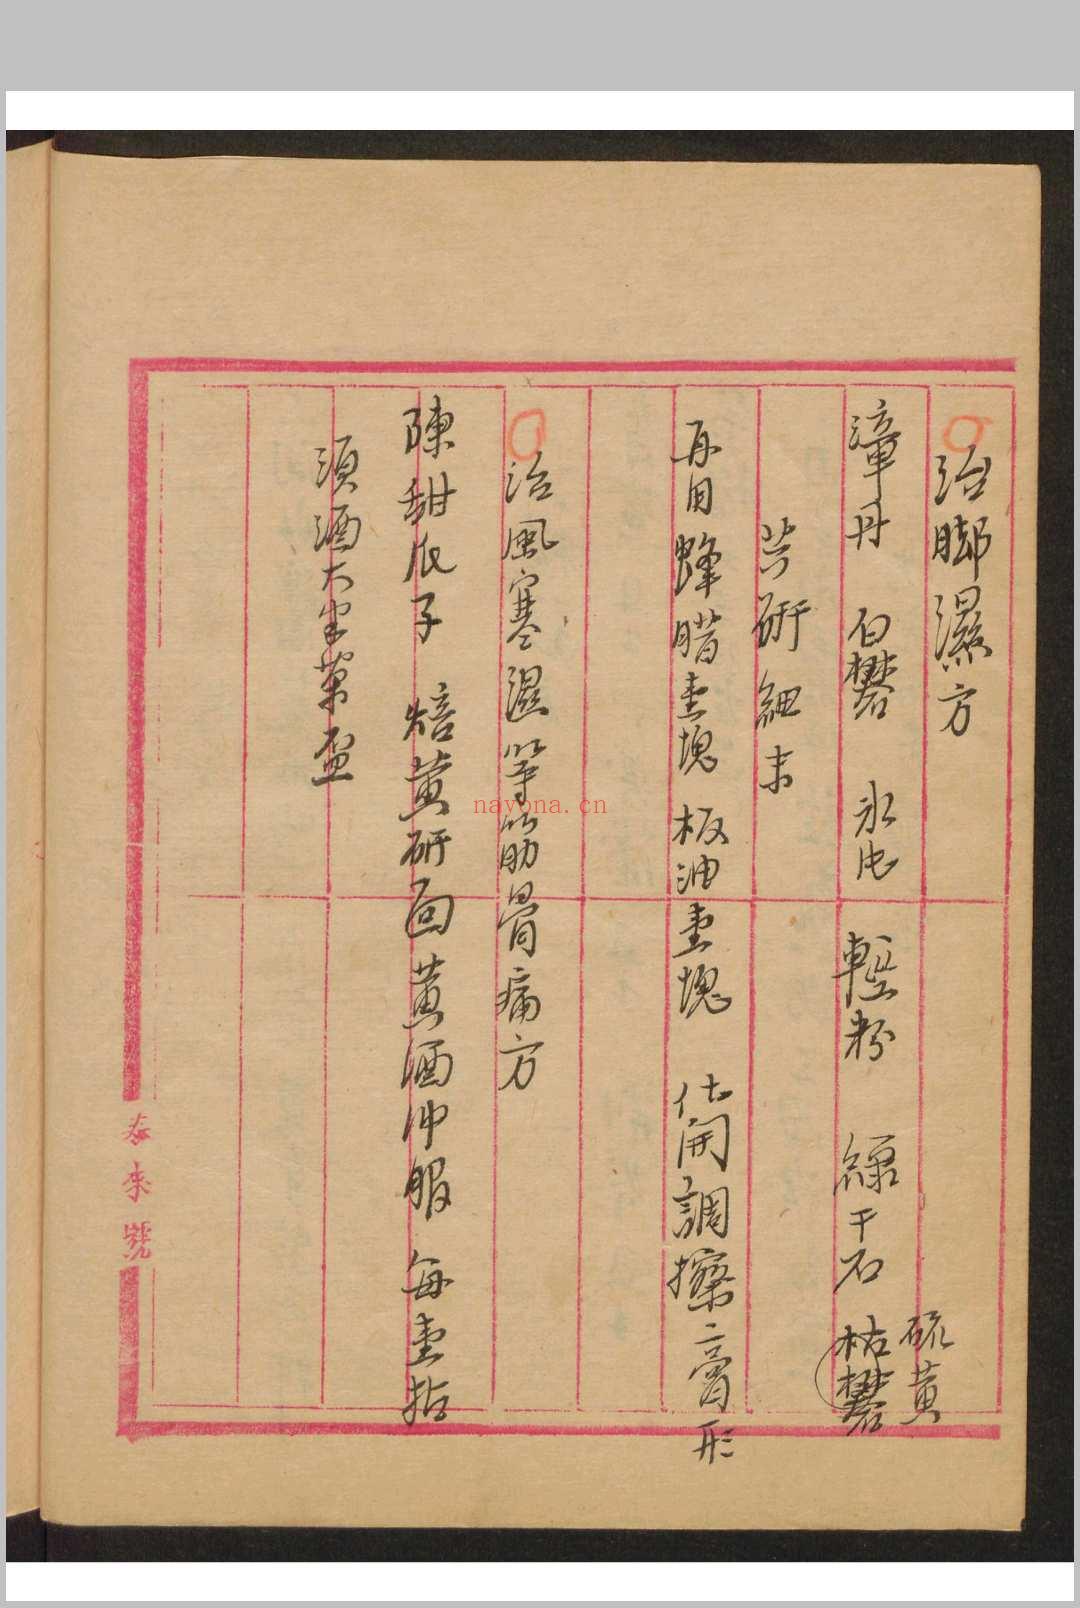 治脚濕方
漳丹 白礬 氷片 輕粉 綠干石 枯礬
硫黄
共研細末
再用蜂腊壹塊 板油壹塊 化開調擦膏形
治風寒濕等筋骨痛方
陳甜瓜子 焙黄研面 黄酒冲服 每壹
須酒大半茶盃
泰來號
nayona.cn